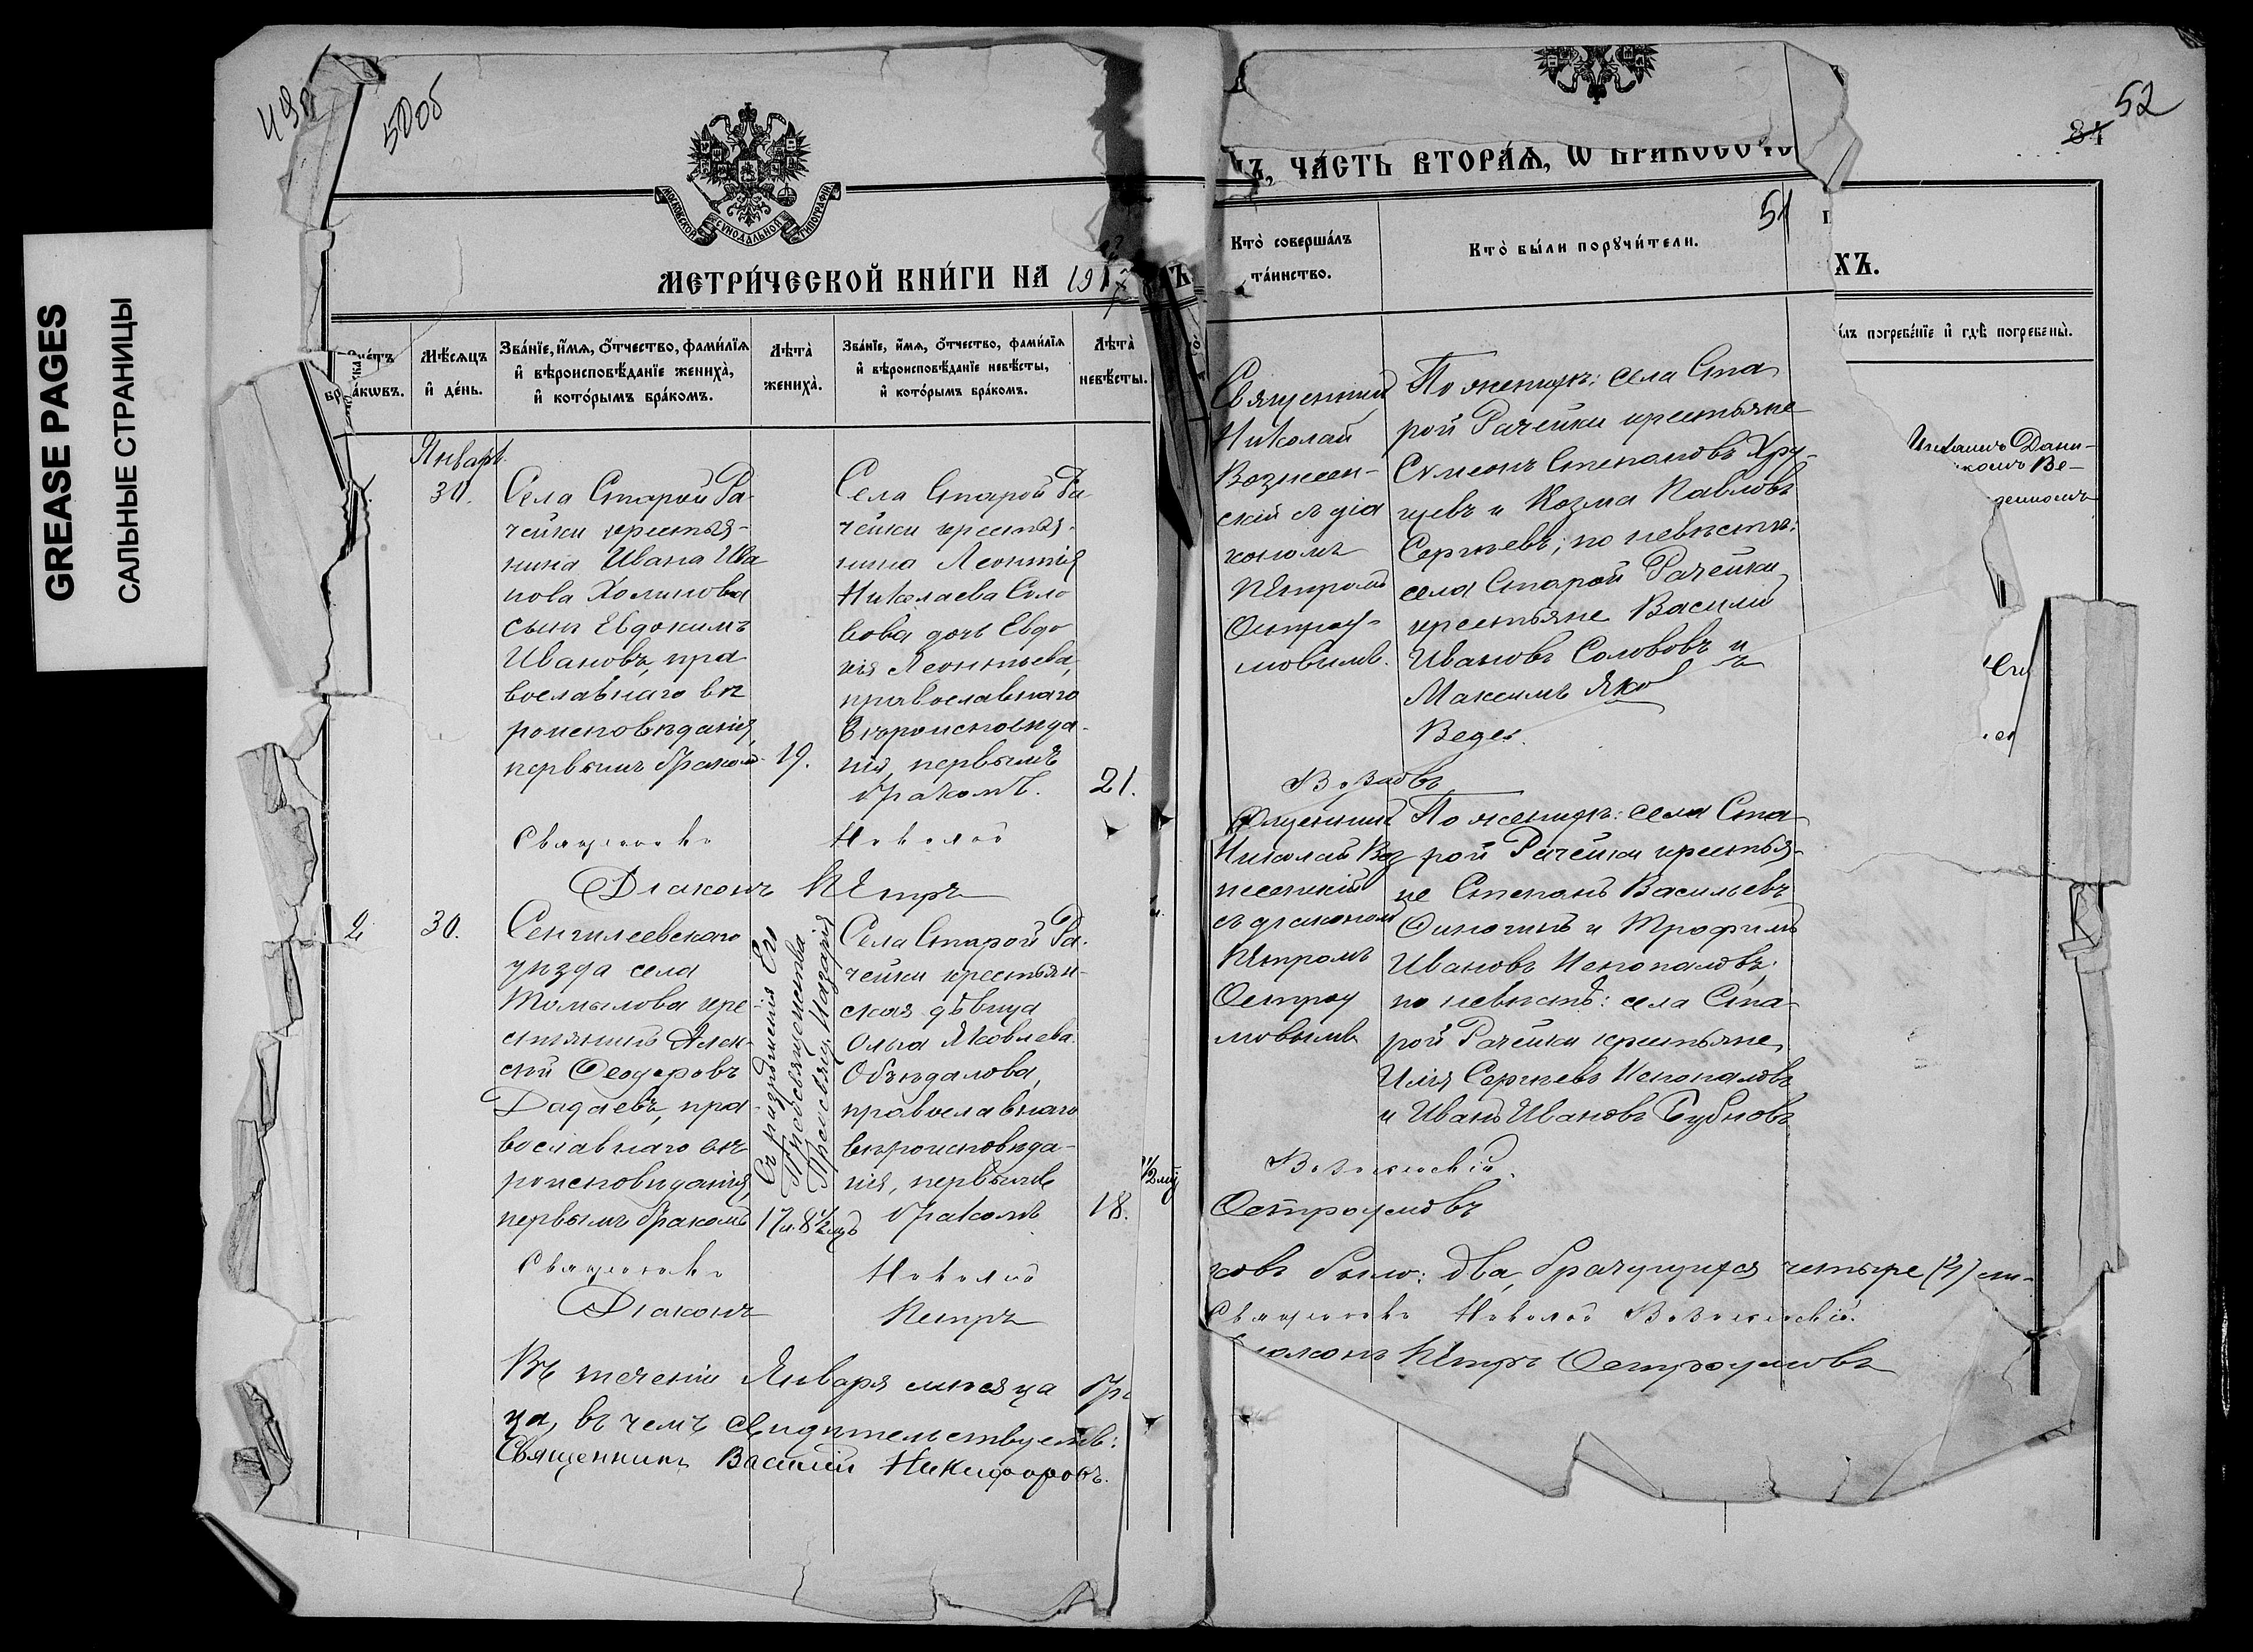 GREASE PAGES
САЛЬНЫЕ СТРАНИЦЫ
50об
МОСКОВСКОЙ СУНОДАЛЬНОЙ ТИПОГРАФІИ
МЕТРИ́ЧЕСКОЙ КНИ́ГИ НА 191
Мѣ́сяцъ
и҆ де́нь.
Зва́нїе, и҆́мѧ, ѻ҆́тчество, фами́лїѧ
и҆ вѣроисповѣ́данїе женихà,
и҆ кото́рымъ бра́комъ.
Лѣ́та
женихà.
Зва́нїе, и҆́мѧ, ѻ҆́тчество, фами́лїѧ
и҆ вѣроисповѣ́данїе невѣ́сты,
и҆ кото́рымъ бра́комъ.
Лѣ́та
невѣ́сты.
Январь
30.
Села Старой Ра-
чейки крестья-
нина Ивана Ива
нова Холинова
сынъ Евдокимъ
Ивановъ, пра
вославнаго вѣ
роисповѣданія,
первымъ бракомъ
19.
Села Старой Ра
чейки крестья-
нина Леонтія
Николаева Соло
вова дочь Евдо
кія Леонтьева,
православнаго
вѣроисповѣда-
нія, первымъ
бракомъ.
21.
Священникъ Николай
Діаконъ Петръ
2
30.
Сенгилеевскаго
уѣзда села
Томылова кре-
стьянинъ Алек-
сѣй Ѳеодоровъ
Дадаевъ, пра
вославнаго вѣ
роисповѣданія,
первымъ бракомъ
Съ разрѣшенія Его
Преосвященства
Преосвящ. Назарія
17 и 8½ мѣ
Села Старой Ра-
чейки крестьян-
ская дѣвица
Ольга Яковлева
Обѣдалова,
православнаго
вѣроисповѣда-
нія, первымъ
бракомъ
18.
Священникъ Николай
Діаконъ Петръ
Въ теченіи Января мѣсяца бр
ца, въ чемъ свидѣтельствуемъ:
Священникъ Василій Никифоровъ.
52
84
Ъ, ЧА́СТЬ ВТОРА́Ѧ, Ѡ БРАКОСОЧ
51
ХЪ.
Кто̀ соверша́лъ
та́инство.
Кто̀ бы́ли порꙋчи́тели.
погребе́нїе и҆ гдѣ̀ погребены̀.
Священникъ
Николай
Вознесен-
скій съ діа
кономъ
Петромъ
Остроу-
мовымъ.
По женихѣ: села Ста
рой Рачейки крестьяне
Сѵмеонъ Степановъ Хру-
щевъ и Козма Павловъ
Сергѣевъ; по невѣстѣ:
села Старой Рачейки
крестьяне Василій
Ивановъ Солововъ и
Максимъ Яков
Веде
Священникъ
Николай Воз
несенскій
съ діакономъ
Петромъ
Остроу
мовымъ
По женихѣ: села Ста
рой Рачейки крестья-
не Степанъ Васильевъ
Синогинъ и Трофимъ
Ивановъ Непопаловъ;
по невѣстѣ: села Ста-
рой Рачейки крестьяне,
Илія Сергѣевъ Непопаловъ
и Иванъ Ивановъ Бубновъ
Вознесенскій.
Остроумовъ
ковъ было: два, брачущихся четыре (4) ли-
Священникъ Николай Вознесенскій.
Петръ Остроумовъ